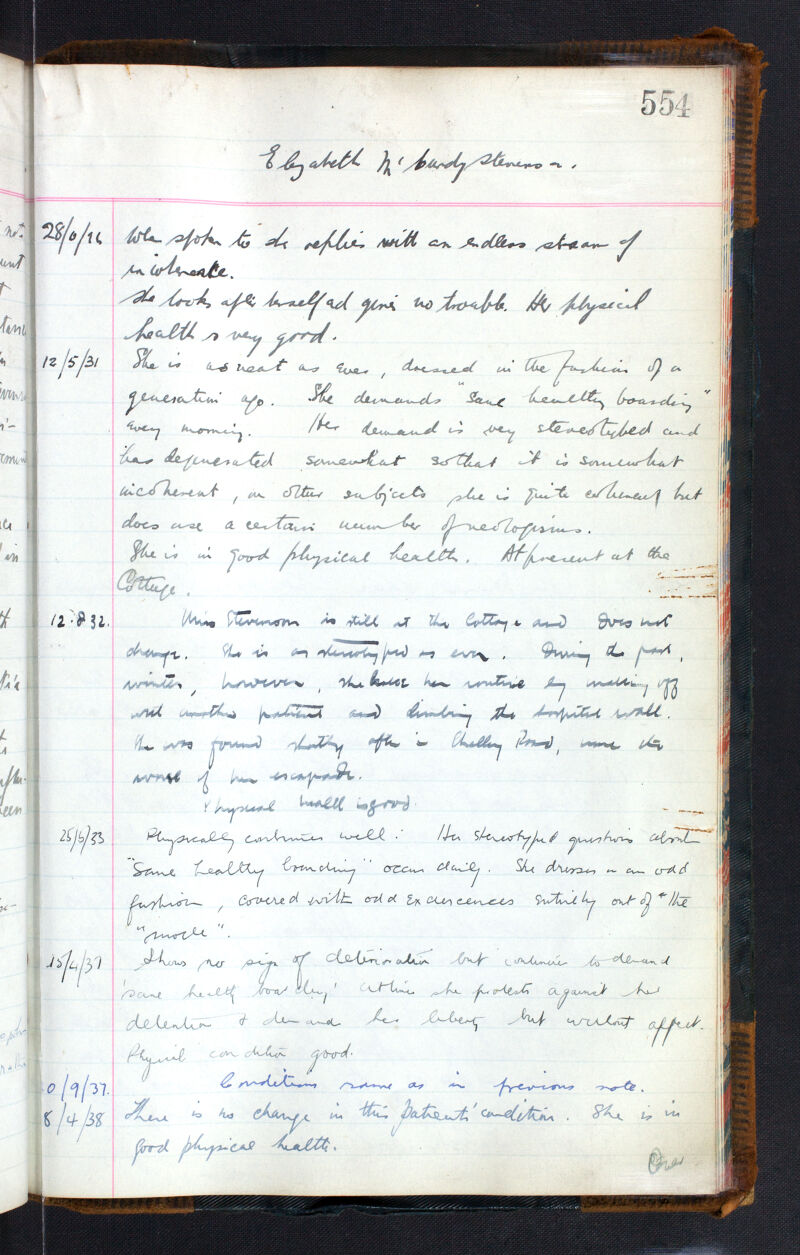 554
Elizabeth Mc Curdy Stevenson.
28/ /26 When spoken to she replies with an endless stream of
incoherence.
She looks after herself and gives no trouble. Her physical
health is very good.
12/5/31 She is as neat as ever, dressed in the fashion of a
generation ago. She demands "Sane healthy boarding"
every morning. Her demand is very stereotyped and
has degenerated somewhat so that it is somewhat
incoherent, on other subjects she is quite coherent but
does use a certain number of neologisms.
She is in good physical health. At present at the
Cottage.
12.8.32. Miss Stevenson is still at the Cottage and does not
change. She is as stereotyped as ever. During the past,
winter, however, she broke her routine by making off
with another patient and climbing the hospital wall.
She was found shortly after in Road, none the
worse of her escapade.
Physical health is good.
25/5/33 Physically continues well. Her stereotyped questions about
"Sane healthy boarding" occur daily. She dresses in an odd
fashion, covered with odd excrescences entirely out of "the
".
15/4/37 Shows no sign of deterioration but continues to demand
'sane healthy boarding' at times she protests against her
detention & demands her liberty but without affect.
Physical condition good.
0/9/37. Condition same as in previous note.
8/4/38 There is no change in this patients' condition. She is in
good physical health.
Over